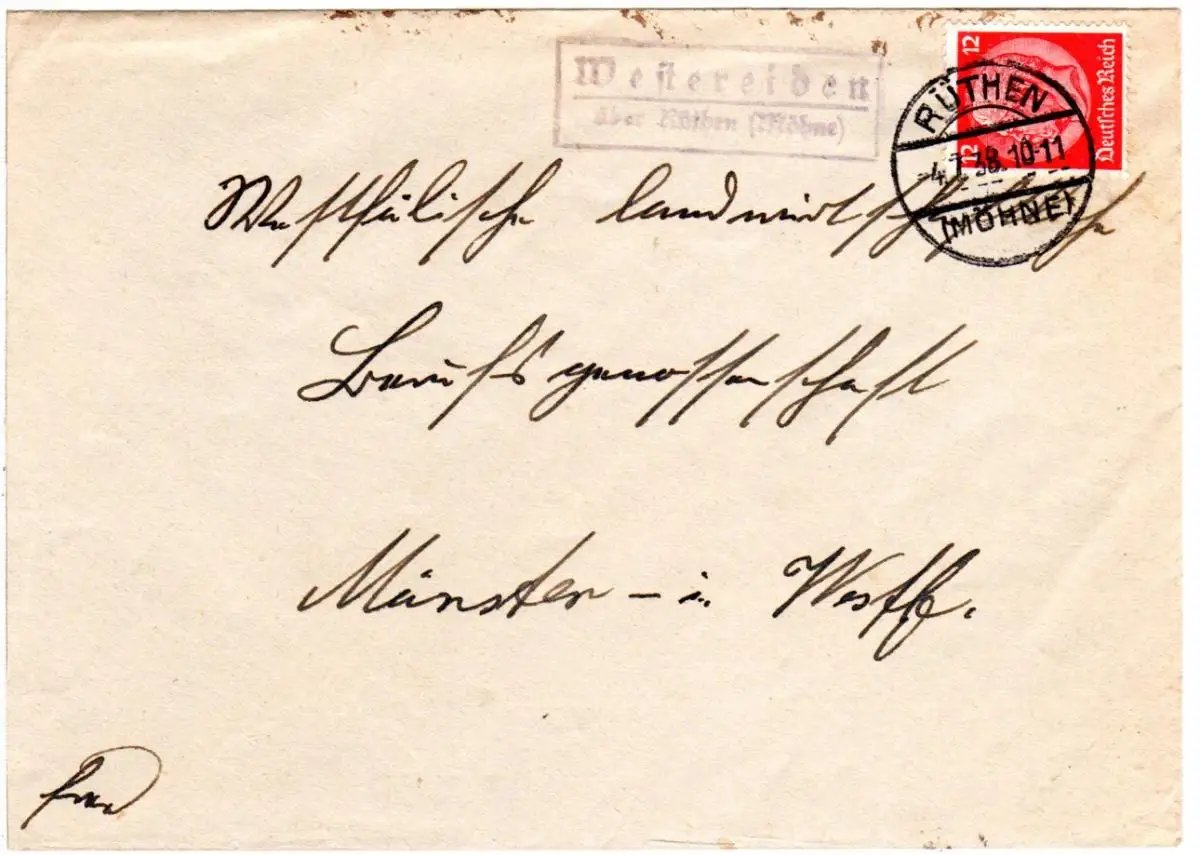 Westereiden
über Rüthen (Möhne)
12
12
Deutsches Reich
RÜTHEN
-4.7.38.10-11
(MÖHNE)
Westfälische landwirtschaftliche
Berufsgenossenschaft
Münster - in Westf.